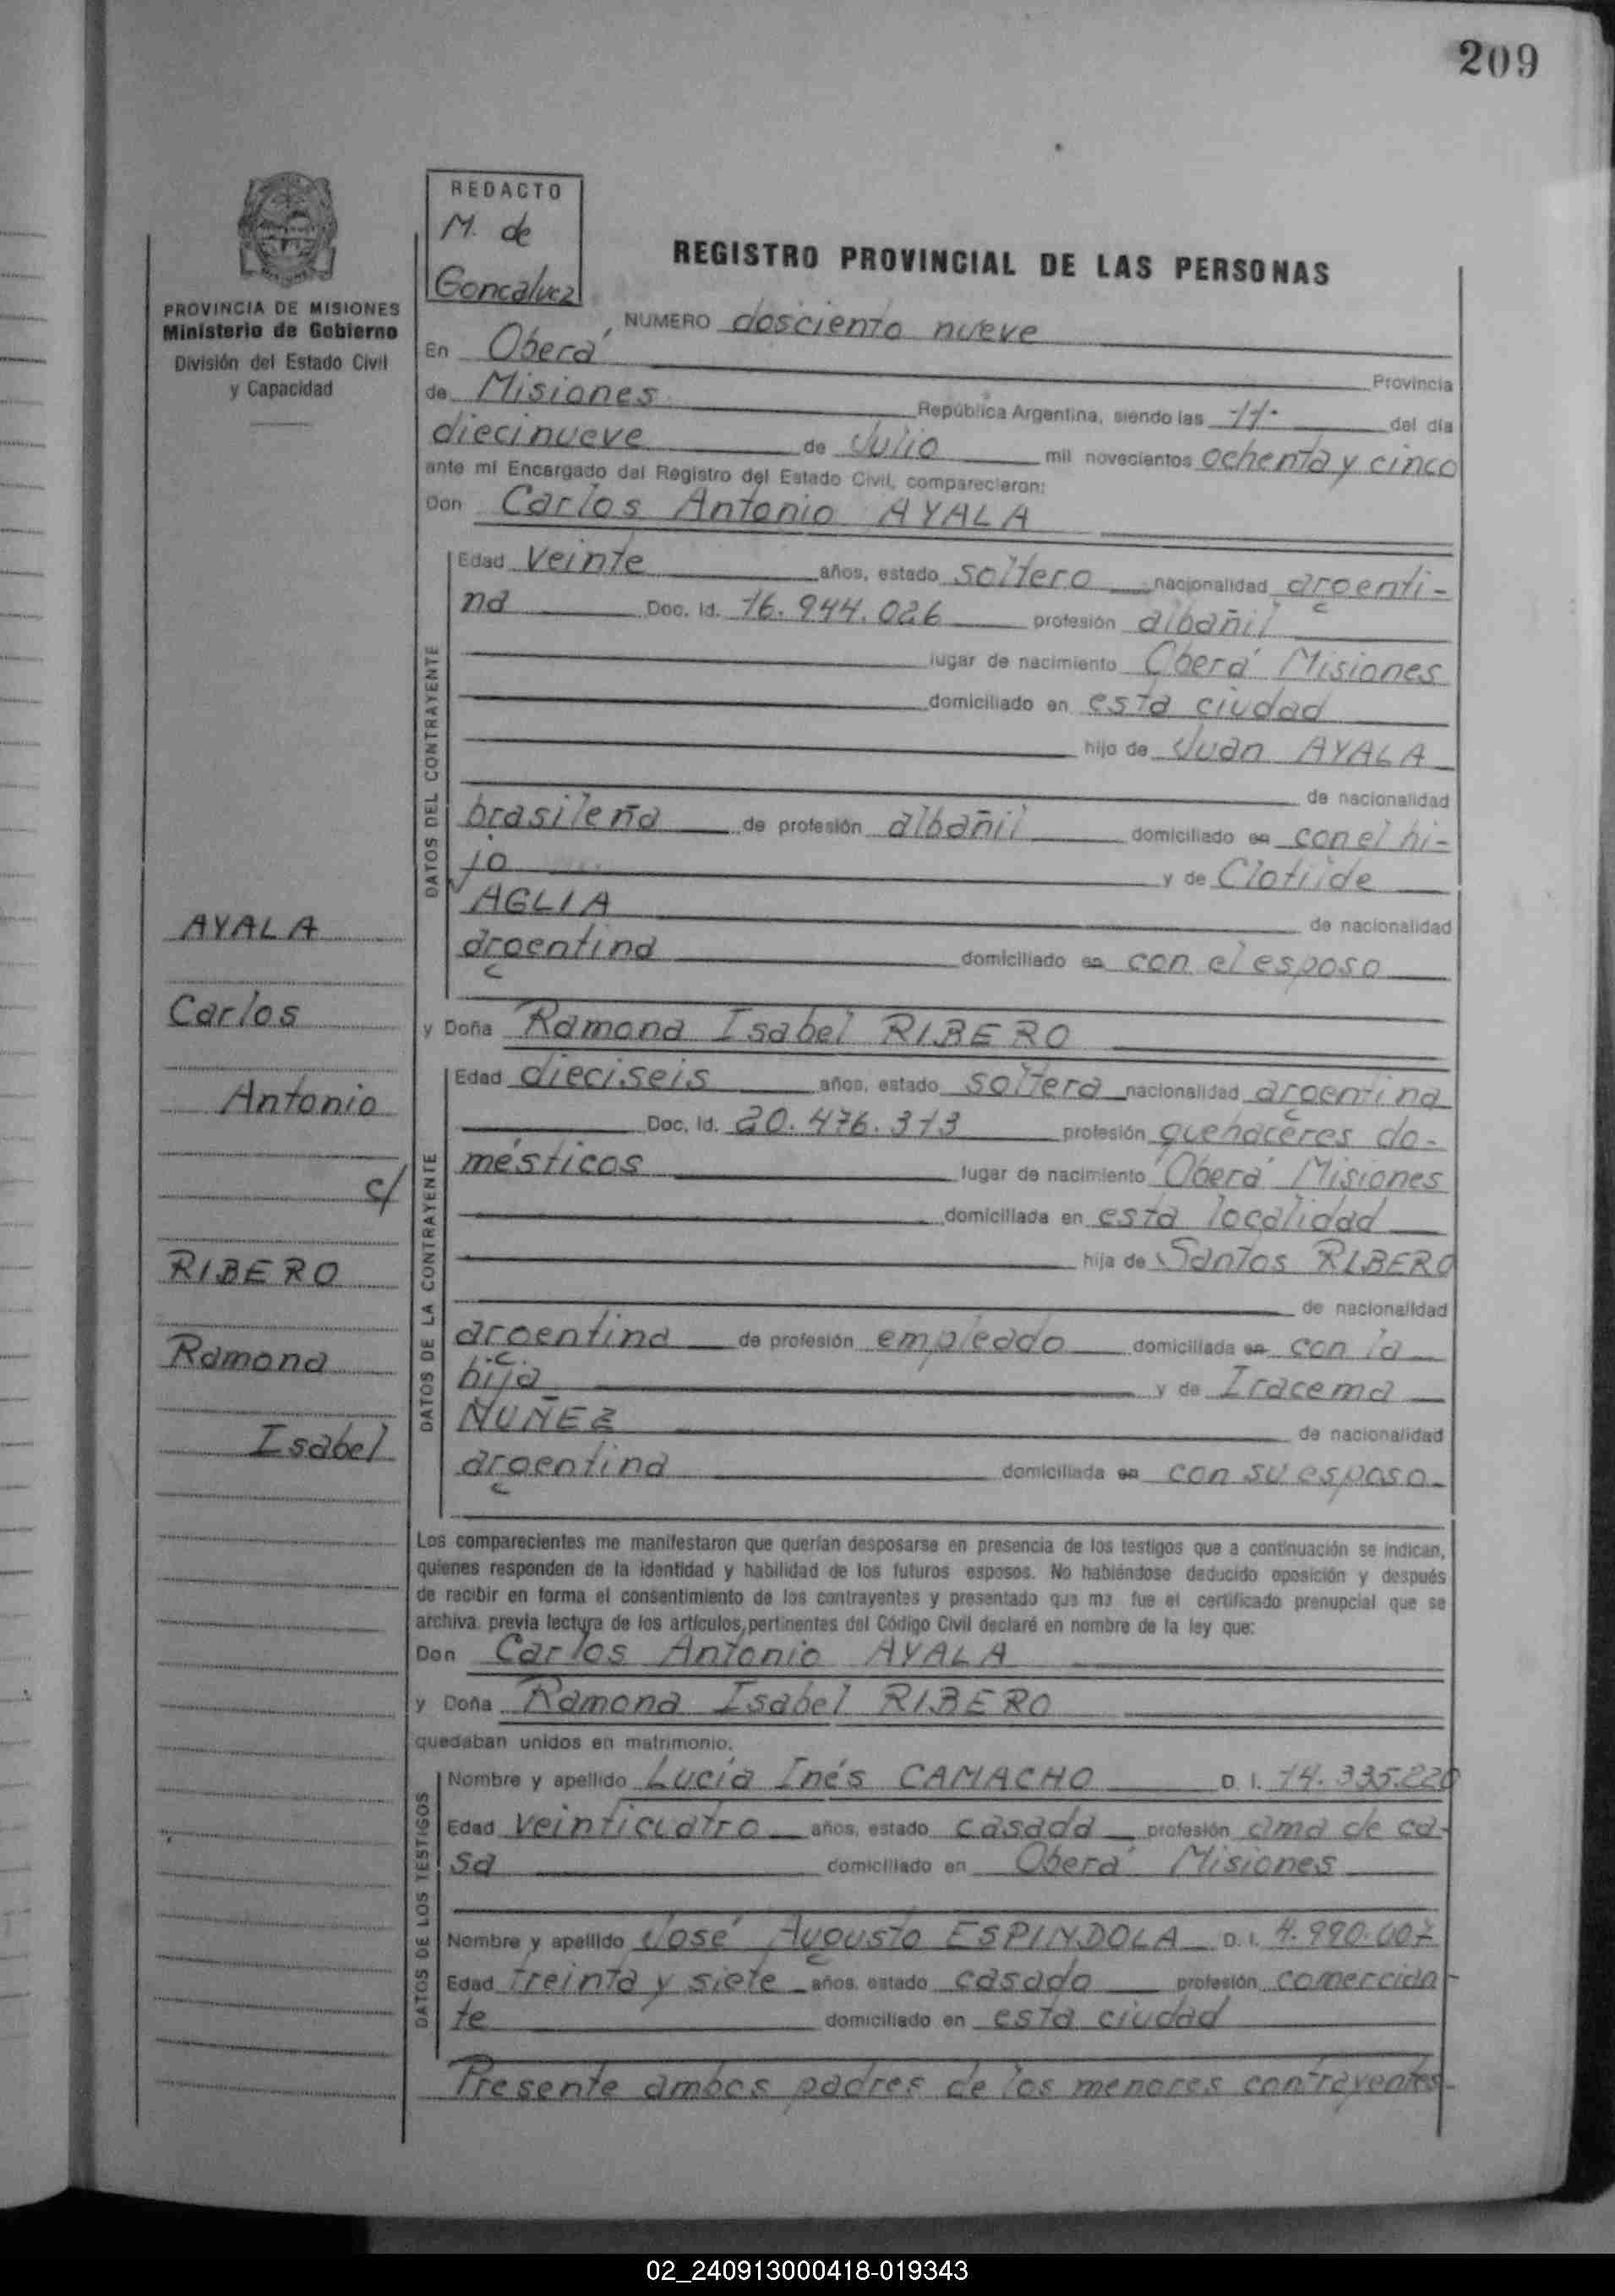 209
REDACTO
M. de
Goncalvez
PROVINCIA DE MISIONES
Ministerio de Gobierno
División del Estado Civil
y Capacidad
REGISTRO PROVINCIAL DE LAS PERSONAS
NUMERO dosciento nueve
En Oberá Provincia
de Misiones República Argentina, siendo las 11. del día
diecinueve de Julio mil novecientos ochenta y cinco
ante mi Encargado del Registro del Estado Civil, comparecieron:
Don Carlos Antonio AYALA
DATOS DEL CONTRAYENTE
Edad veinte años, estado soltero nacionalidad argenti-
na Doc. Id. 16.944.026 profesión albañil
lugar de nacimiento Oberá Misiones
domiciliado en esta ciudad
hijo de Juan AYALA
de nacionalidad
brasileña de profesión albañil domiciliado en con el hi-
jo y de Clotilde
AGLIA de nacionalidad
argentina domiciliado en con el esposo
y Doña Ramona Isabel RIBERO
DATOS DE LA CONTRAYENTE
Edad dieciseis años, estado soltera nacionalidad argentina
Doc. Id. 20.476.313 profesión quehaceres do-
mésticos lugar de nacimiento Oberá Misiones
domiciliada en esta localidad
hija de Santos RIBERO
de nacionalidad
argentina de profesión empleado domiciliada en con la
hija y de Iracema
NUÑEZ de nacionalidad
argentina domiciliada en con su esposo
AYALA
Carlos
Antonio
c/
RIBERO
Ramona
Isabel
Los comparecientes me manifestaron que querían desposarse en presencia de los testigos que a continuación se indican,
quienes responden de la identidad y habilidad de los futuros esposos. No habiéndose deducido oposición y después
de recibir en forma el consentimiento de los contrayentes y presentado que me fue el certificado prenupcial que se
archiva previa lectura de los artículos pertinentes del Código Civil declaré en nombre de la ley que:
Don Carlos Antonio AYALA
y Doña Ramona Isabel RIBERO
quedaban unidos en matrimonio.
DATOS DE LOS TESTIGOS
Nombre y apellido Lucía Inés CAMACHO D. I. 14.335.220
Edad veinticuatro años, estado casada profesión ama de ca-
sa domiciliado en Oberá Misiones
Nombre y apellido José Augusto ESPINDOLA D. I. 4.990.007
Edad treinta y siete años, estado casado profesión comercian-
te domiciliado en esta ciudad
Presente ambos padres de los menores contrayentes.
02_240913000418-019343